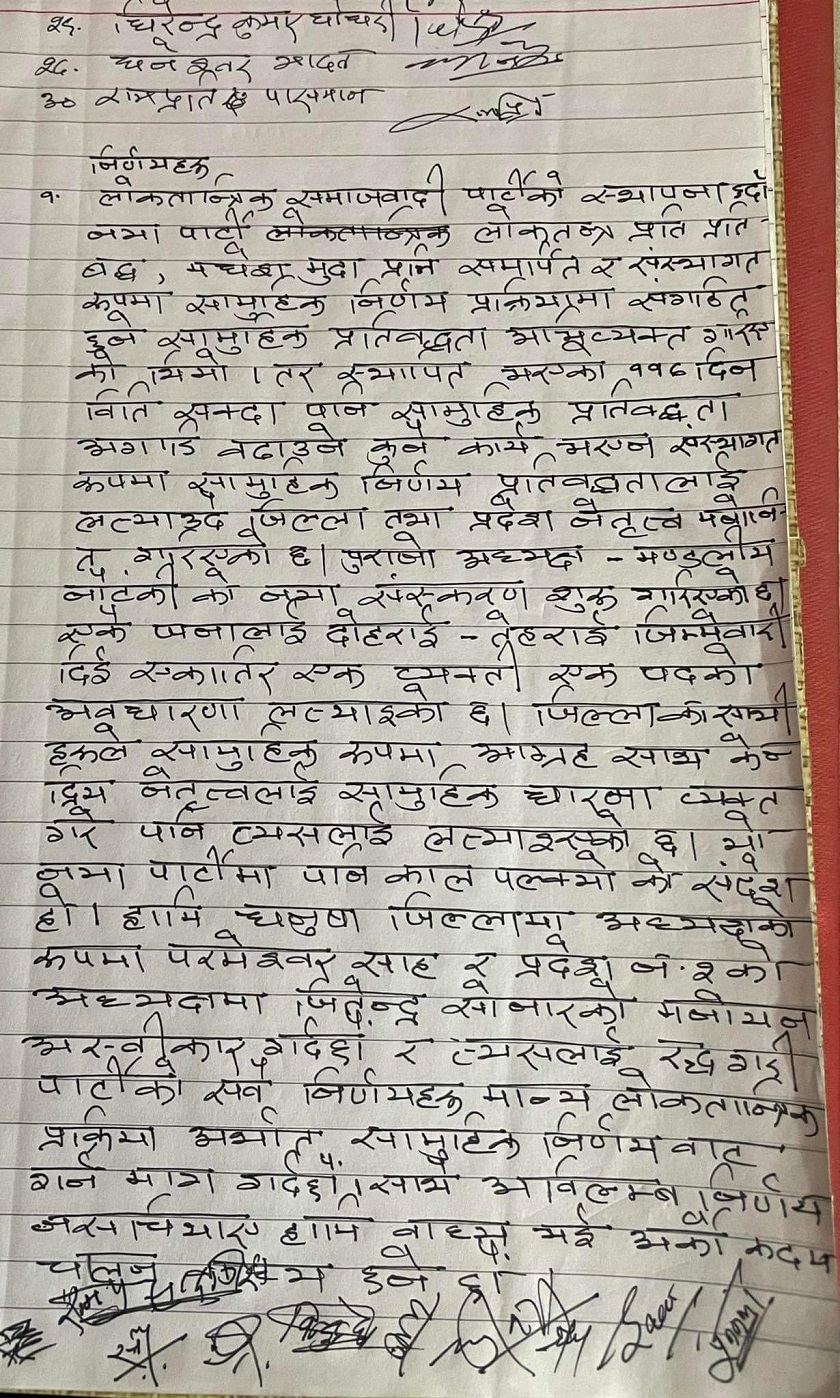 २९. धिरेन्द्र कुमार चौधरी
२९. धनेश्वर यादव
३० रामप्रीत पासमान
निर्णयहरू
१. लोकतान्त्रिक समाजवादी पार्टीको स्थापना हुदाँ
नया पार्टी लोकतान्त्रिक लोकतन्त्र प्रति प्रति-
बद्ध, मधेश मुद्दा प्रति समर्पित र संस्थागत
रूपमा सामुहिक निर्णय प्रक्रियामा संगठित
हुने सामुहिक प्रतिवद्धता अभिव्यक्त गरिए
को थियो । तर स्थापित भएको ११६ दिन
विति सक्दा पनि सामुहिक प्रतिवद्धता
अगाडि वढाउने कुनै कार्य भएन संस्थागत
रूपमा सामुहिक निर्णय प्रतिवद्धतालाई
लत्याउदै जिल्ला तथा प्रदेश नेतृत्व
गरिएको छ। पुरानो अध्यक्ष - मण्डलीय
नाटकी को नया संस्करण शुरू गरिएको छ।
एकै जनालाई दोहराई - तेहराई जिम्मेवारी
दिई एकातिर एक व्यक्ती एक पदको
अवधारणा लत्याइको छ। जिल्लाका साथी
हरूले सामुहिक रूपमा आग्रह साथ केन्
द्रिय नेतृत्वलाई सामुहिक धारणा व्यक्त
गरे पनि त्यसलाई लत्याइएको छ। यो
नया पार्टीमा पनि काल पल्क्यो को संदेश
हो। हामि धनुषा जिल्लामा अध्यक्षको
रूपमा परमेश्वर साह र प्रदेश नं. २ को
अध्यक्षमा जितेन्द्र सोनारको मनोयन
अस्वीकार गर्दछौ र त्यसलाई रद्ध गरी
पार्टीको सवै निर्णयहरू मान्य लोकतान्त्रिक
प्रक्रिया अर्थात सामुहिक निर्णय वाट
गर्न माग गर्दछौ। साथै अविलम्ब निर्णय
नसच्चियाए हामि वाध्य भई अर्को कदम
चाल्न हुने छौ